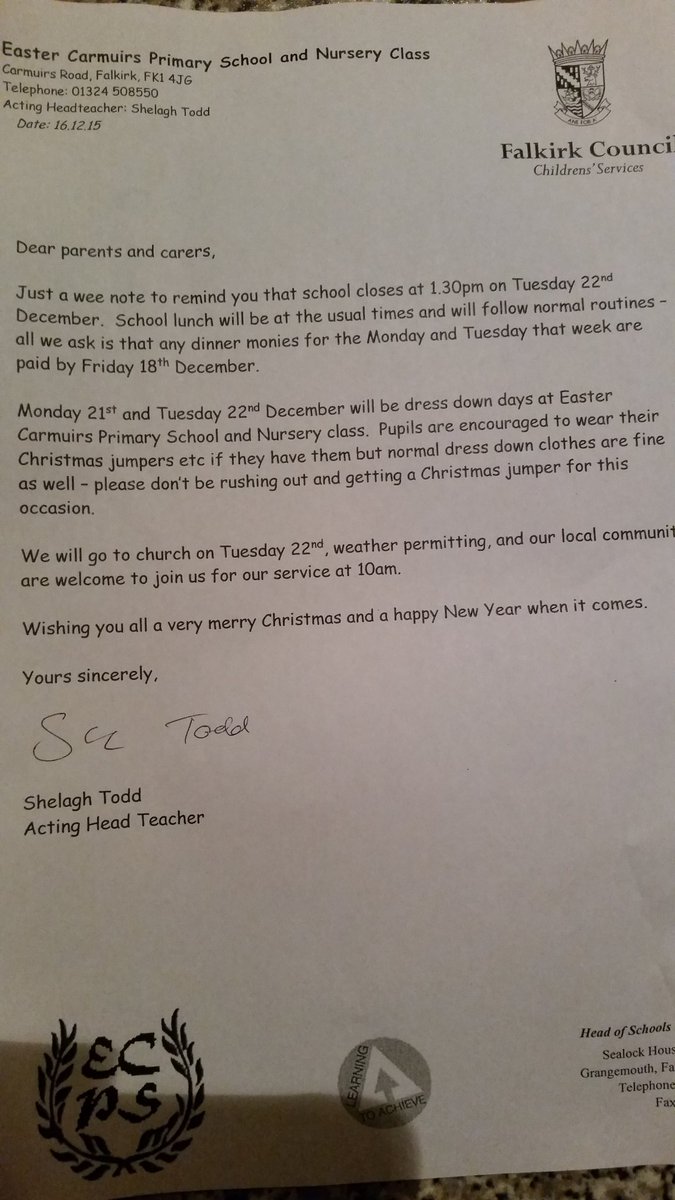 Easter Carmuirs Primary School and Nursery Class
Carmuirs Road, Falkirk, FK1 4JG
Telephone: 01324 508550
Acting Headteacher: Shelagh Todd
Date: 16.12.15
ANE FOR A'
Falkirk Council
Childrens' Services
Dear parents and carers,
Just a wee note to remind you that school closes at 1.30pm on Tuesday 22nd
December. School lunch will be at the usual times and will follow normal routines –
all we ask is that any dinner monies for the Monday and Tuesday that week are
paid by Friday 18th December.
Monday 21st and Tuesday 22nd December will be dress down days at Easter
Carmuirs Primary School and Nursery class. Pupils are encouraged to wear their
Christmas jumpers etc if they have them but normal dress down clothes are fine
as well – please don't be rushing out and getting a Christmas jumper for this
occasion.
We will go to church on Tuesday 22nd, weather permitting, and our local communit
are welcome to join us for our service at 10am.
Wishing you all a very merry Christmas and a happy New Year when it comes.
Yours sincerely,
Todd
Shelagh Todd
Acting Head Teacher
EC
PS
LEARNING
TO ACHIEVE
Head of Schools
Sealock Hous
Grangemouth, Fa
Telephone
Fax